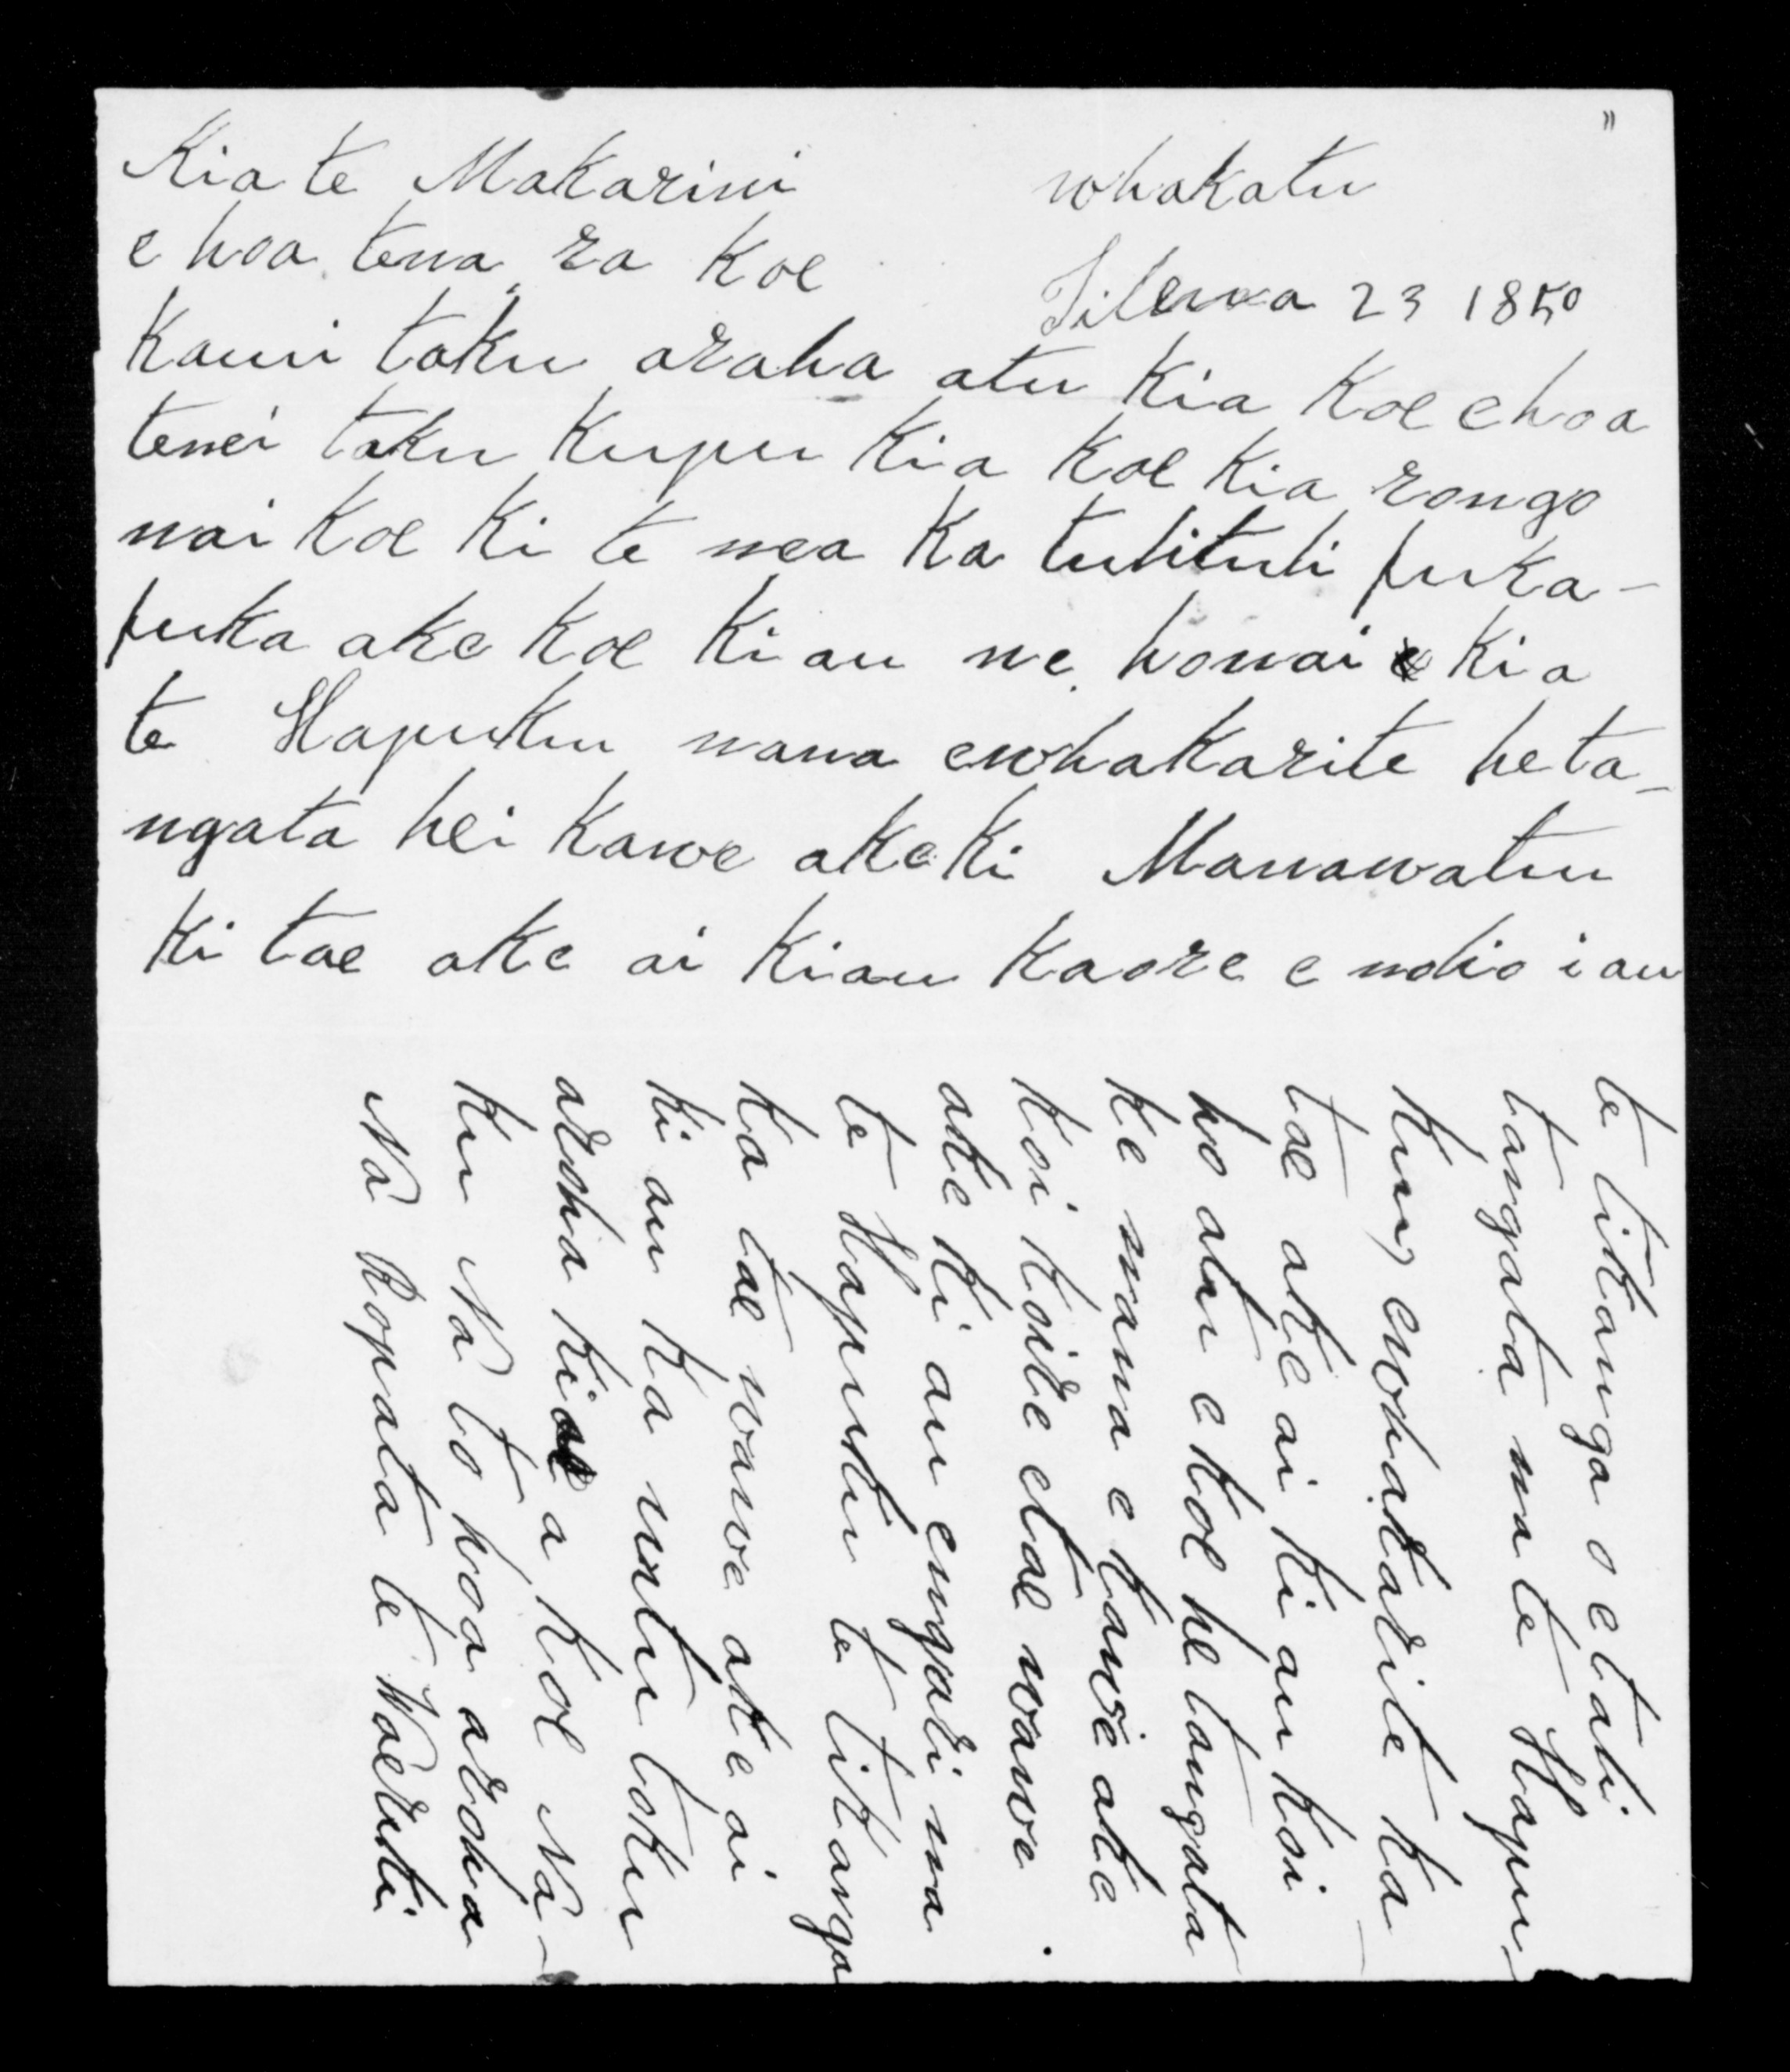 Kia te Makarini
whakatu
e hoa tena ra koe
Tihema 23 1850
Kanui taku aroha atu kia koe ehoa
tenei taku kupu kia koe kia rongo
mai koe ki te mea ka tuhituhi puka-
puka ake koe kiau me homai kia
te Hapuku mana ewhakarite heta-
ngata hei kawe ake ki Manawatu
ki tae ake ai kiau kaore e mohio iau
te tikanga o etahi
tangata ma te Hapu-
ku, ewhakarite ka
tae ake ai ki au koi
ho atu e koe he tangata
ke mana e kawe ake
koi kore etae wawe
ake ki au engari ma
te Hapuku te tikanga
ka tae wawe ake ai
ki au ka mutu toku
aroha kia a koe Na-
ku Na to hoa aroha
Na Ropata te